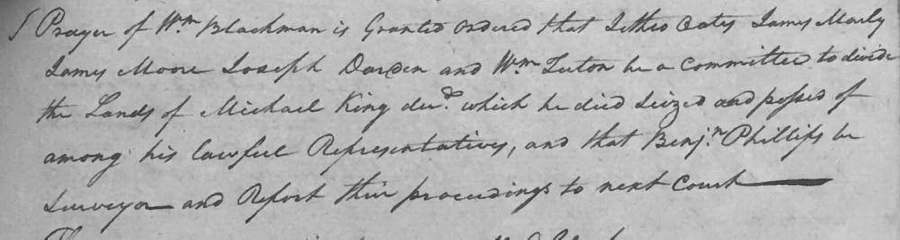 Prayer of Wm Blackman is Granted ordered that Jethro Oates James Marly
James Moore Joseph Darden and Wm Tuton be a Committee to divide
the Lands of Michael King decd. which he died Seized and possed of
among his lawfull Representatives, and that Benjn. Phillips be
Surveyor and Report their proceedings to next Court